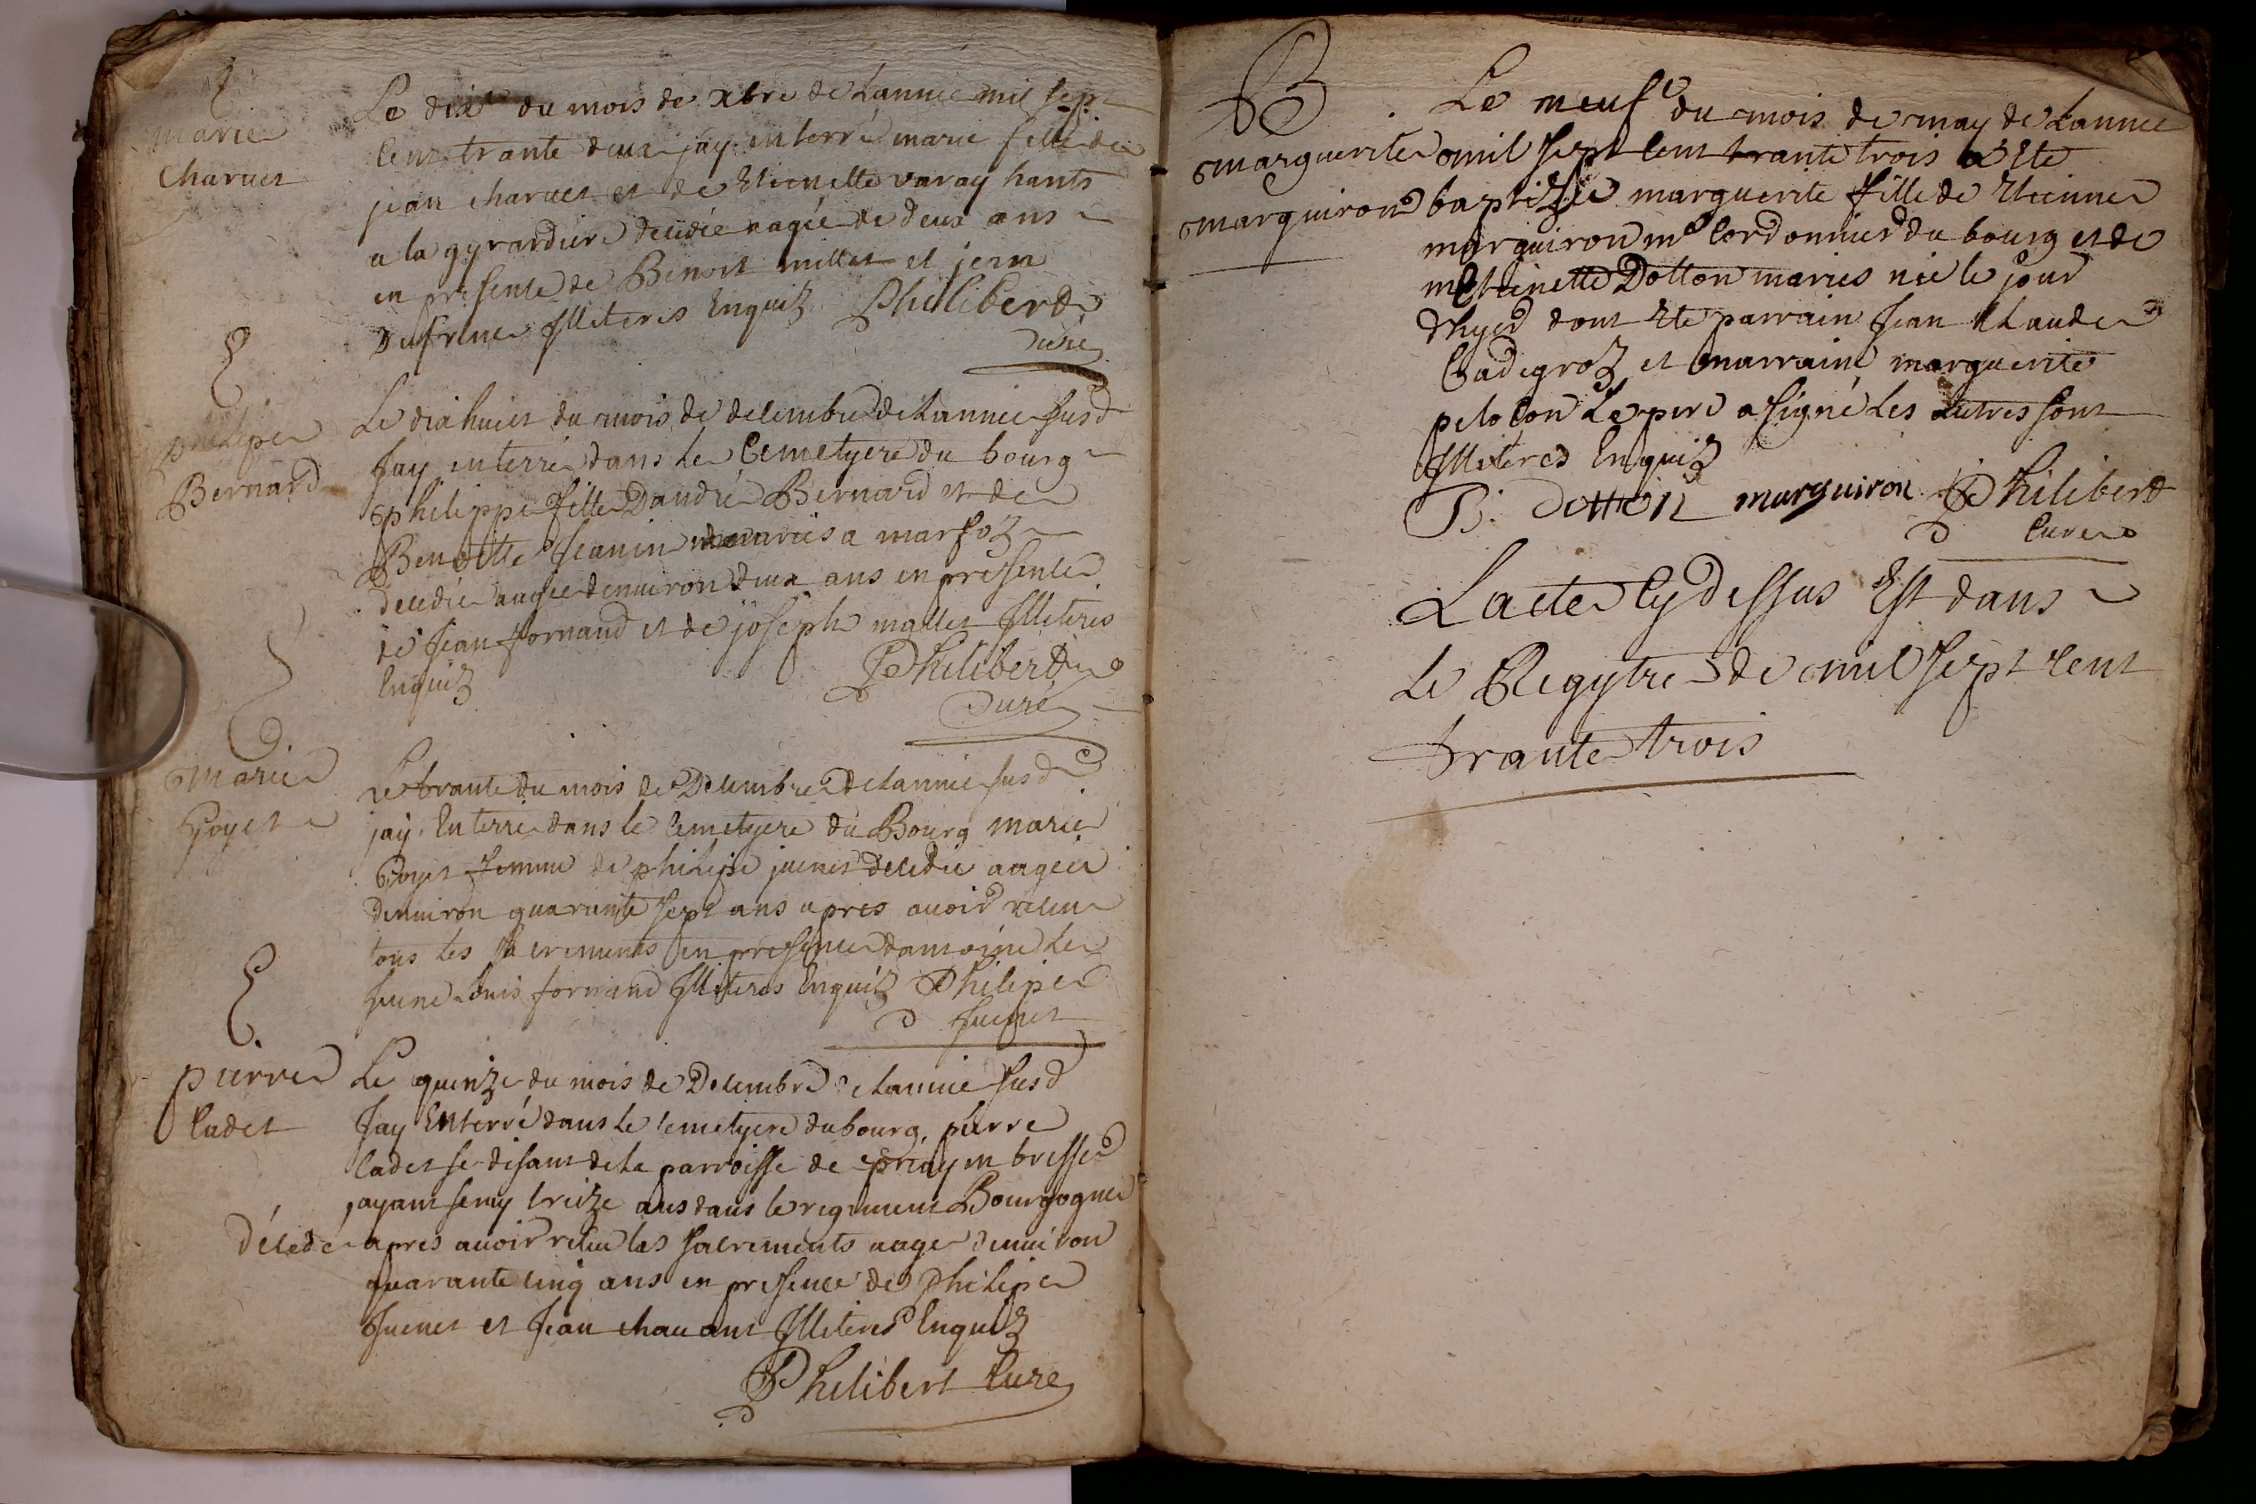 E
marie
Charuet
Le dix du mois de xbre de Lannee mil sept
Cent trante deux jay enterré marie fille de
jean charuet et de Etienette varay hants
a la gyrardiere decedée aagée de deux ans
en presence de Benoit millet et jean
Dufrene Illiteres Enquiz Philiberd
Curé
E
philipe
Bernard
Le dixhuict du mois de decembre de Lannee susd
Jay enterré dans le Cemetyere du bourg
philippe fille Dandré Bernard et de
Benoitte Jeanin mariés a marfoz
decedée aagée denuiron deux ans en presence
de Jean fornand et de joseph mallet Illiteres
Enquiz Philibert
Curé
E
Marie
Goyet
Le trante du mois de Decembre de Lannee susd
jay Enterré dans le Cemetyere du Bourg marie
Goyet femme de philipe juenet decedée aagée
denuiron quarante sept ans apres auoir receu
tous les sacrements en presence dantoine Le
jeune Louis fornand Illiteres Enquiz Philipe
Juenet
E
pierre
Cadet
Le quinze du mois de Decembre de Lannee susd
Jay Enterré dans le Cemetyere du bourg pierre
Cadet se disant de la parroisse de priay en bresse
ayant seruy treize ans dans le regiment Bourgogne
décedé apres auoir receu les sacrements aage denuiron
quarante cinq ans en presence de Philipe
Juenet et Jean chauant Illiteres Enquiz
Philibert Curé
B
marguerite
marguiron
Le neufe du mois de may de Lannee
mil sept cent trante trois a Ete
baptizée marguerite fille de Etienne
marguiron me Cordonnier du bourg et de
Etienette Dotton mariés née le jour
dhyer dont Ete parrain Jean Claude
Cadegroz et marraine marguerite
peloton Le pere a signé Les autres sont
Illiteres Enquiz
B. dotton marguiron Philibert
Curé
Lacte Cy dessus Est dans
Le Regytre de mil sept cent
trante trois